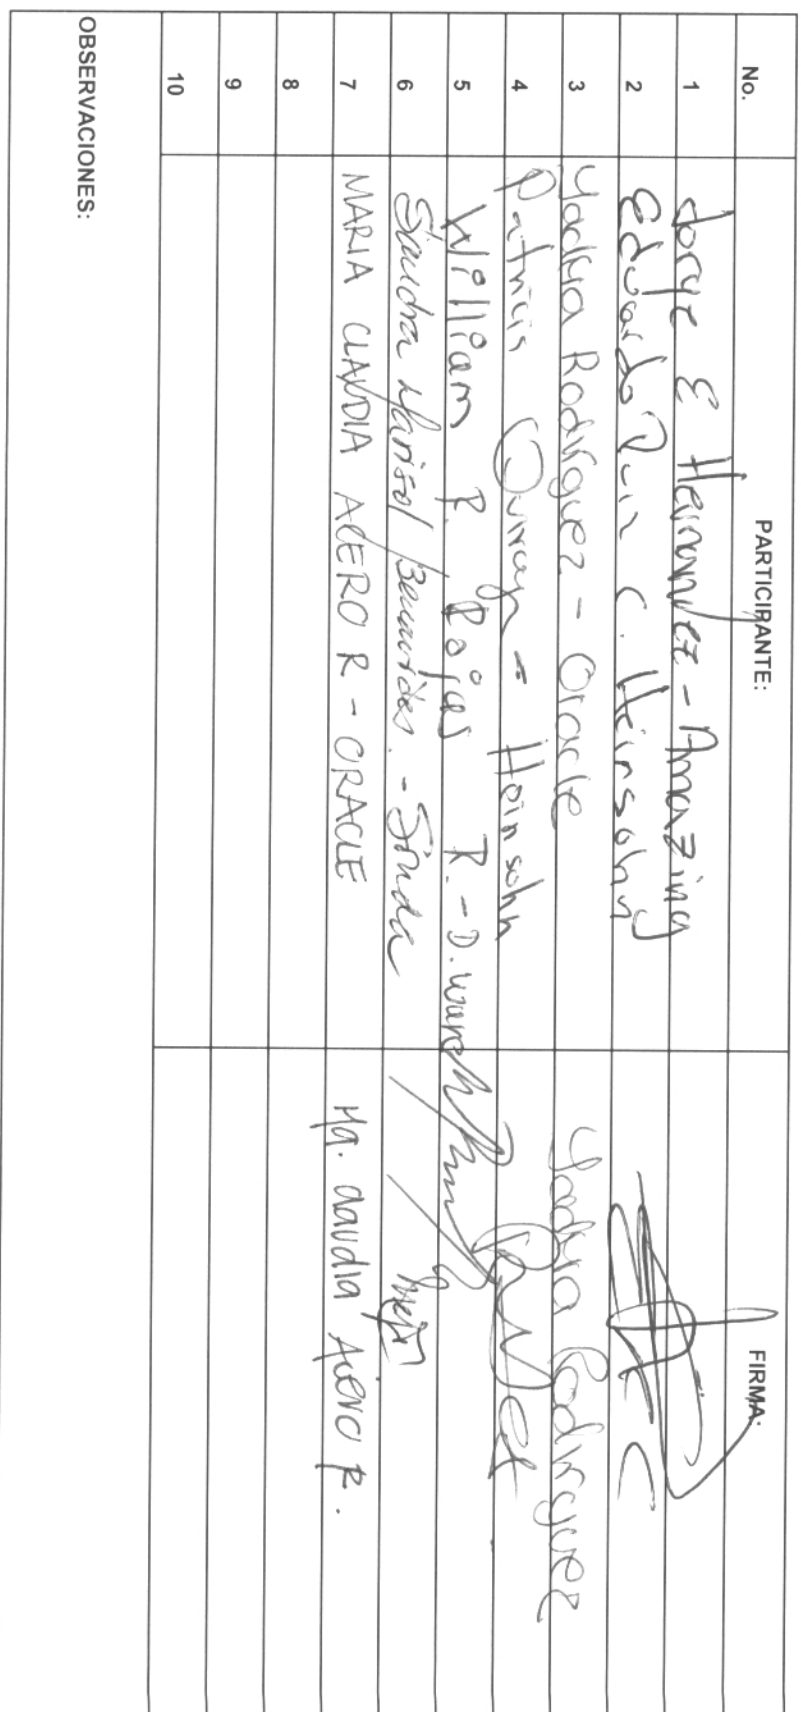 No. PARTICIPANTE: FIRMA:
1 Jorge E Hernandez - Amazing
2 Eduardo Ruiz C. Heinsohn
3 Yadira Rodriguez - Oracle Yadira Rodriguez
4 Patricia - Heinsohn
5 William R. Rojas R. - D. ware
6 Sandra Marisol Benavides. - Sonda
7 MARIA CLAUDIA ACERO R - ORACLE Ma. Claudia Acero R.
8
9
10
OBSERVACIONES: